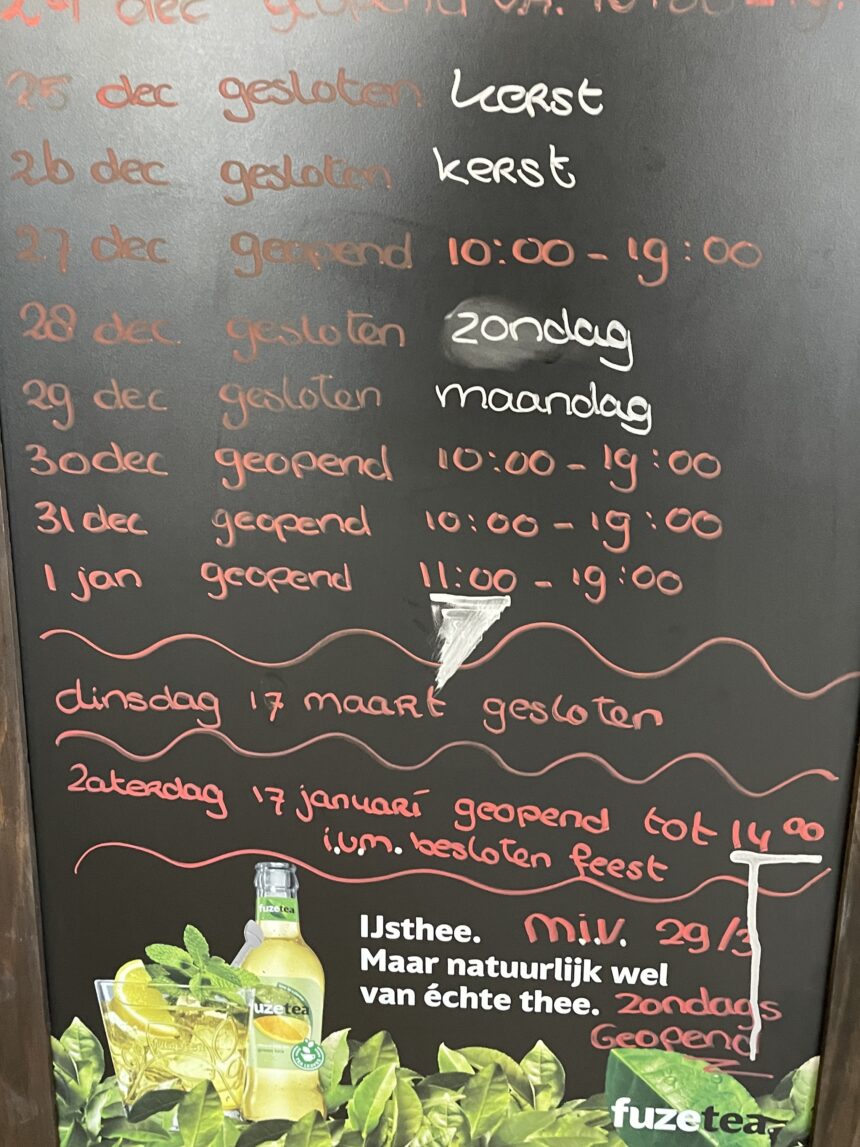 24 dec geopend
25 dec gesloten kerst
26 dec gesloten kerst
27 dec geopend 10:00 - 19:00
28 dec gesloten zondag
29 dec gesloten maandag
30 dec geopend 10:00 - 19:00
31 dec geopend 10:00 - 19:00
1 jan geopend 11:00 - 19:00
dinsdag 17 maart gesloten
Zaterdag 17 januari geopend tot 14 00
i.v.m. besloten feest
IJsthee. m.i.v. 29/3
Maar natuurlijk wel
van échte thee. Zondags
Geopend
fuzetea
fuzetea
fuzetea